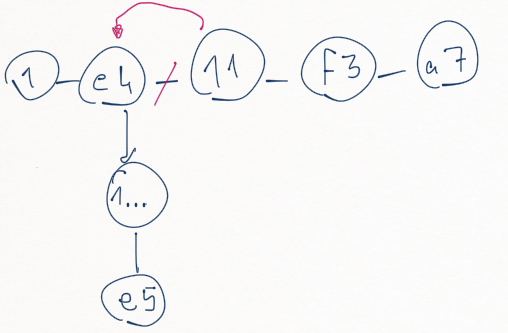 1 e4 11 f3 a7
1...
e5